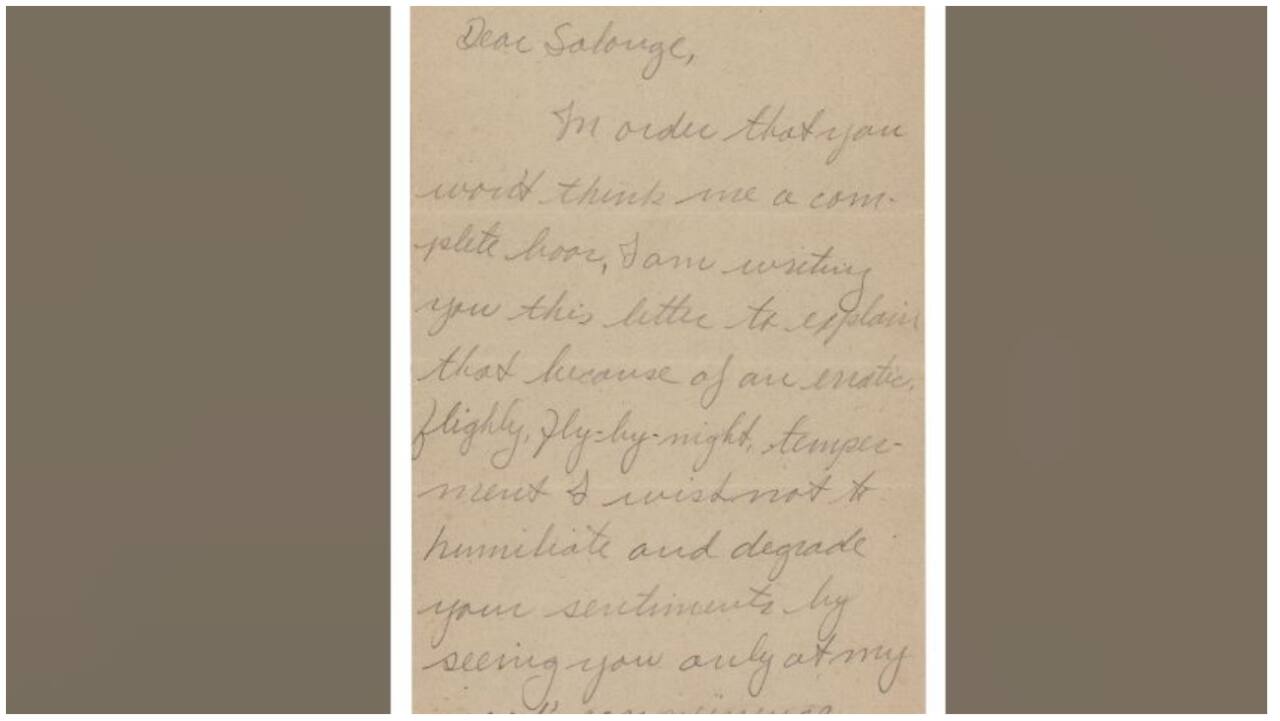 Dear Solange,
In order that you
won't think me a com-
plete boor, I am writing
you this letter to explain
that because of an erratic,
flighty, fly-by-night, temper-
ment I wish not to
humiliate and degrade
your sentiments by
seeing you only at my